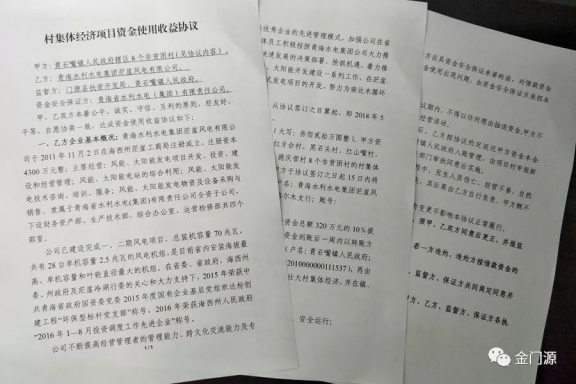 村集体经济项目资金使用收益协议
甲方：黄石嘴镇人民政府辖区8个自贫困村（见协议内容）。
乙方：青海水利水电集团茫崖风电有限公司。
监督方：门源县扶贫开发局、青石嘴镇人民政府。
资金安全保证方：青海省水利水电（集团）有限责任公司。
甲、乙双方本着公平、诚实、守信、互利的原则，经友好、
平等、自愿协商一致，达成资金使用收益协议如下：
一、乙方企业基本概况：青海水利水电集团茫崖风电有限公
司于2011年11月2日在海西州茫崖工商局注册成立。注册资本
4300万元整。主要经营：风能、太阳能发电项目开发、投资、建
设和经营管理；风能、太阳能电站的综合利用；风能、太阳能发
电技术咨询、培训、服务；风能、太阳能发电物资及设备采购与
销售。隶属于青海省水利水电(集团)有限责任公司全资子公司。
下设财务资产部、生产技术部、综合办公室、运营检修部共四个
部室。
公司已建设完成一、二期风电项目，总装机容量70兆瓦，
共有28台单机容量2.5兆瓦的风电机组，是目前省内安装海拔最
高、单机容量和叶轮直径最大的机组。在省委、省政府、海西州
委、州政府及茫崖冷湖行委的关心和大力支持下，2015年荣获中
共青海省政府国资委党委2015年度国有企业基层党组织达标创
建工程"环保型标杆党支部"称号，2016年荣获海西州人民政府
"2016年1—8月投资调度工作先进企业"称号。
公司不断提高经营管理者的管理能力、跨文化交流能力及专
优秀企业的先进管理模式，加强公司在省
体员工积极按照青海水电集团公司大力推
快速发展的决策部署，抓机遇、着力推
、太阳能开发建设一系列工作，在茫崖
发电项目的开发，努力为柴达木循环
从协议签订之日起算，即2018年5
（大写：叁佰贰拾万圆整），甲方资
红牙合村、黑石头村、红山嘴村、
德庆营村8个非贫困村的村集体
方于协议签订之日起15日内将
总额320万元的10%提
资金到账后一周内以转账方
（户名：青石嘴镇人民政
2010000000111537），再由
壮大村集体经济，并在镇、
安全运行；
方出具资金安全保证承诺的函，对借款资金
使用出现问题，由资金安全保证方承担本
议期内，不得以任何理由抽逃资金，甲方不
经营活动。
中发生人员伤亡、经营不善、自然
其后果由乙方自行负责，甲方概不
变更不影响本协议正常履行。
甲、乙双方同意后更正，并报监
若一方违约，违约方按借款资金的
、监督方、保证方共同商定同意并
甲方、乙方、监督方、保证方各执
1/5
金门源